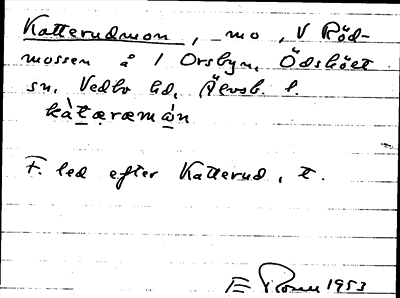 Katterudmon, mo, V Röd-
mossen å 1 Orsbyn, Ödskölt
sn, Vedbo hd, Älvsb. l.
kàtæræmán
F. led efter Katterud, t.
1953